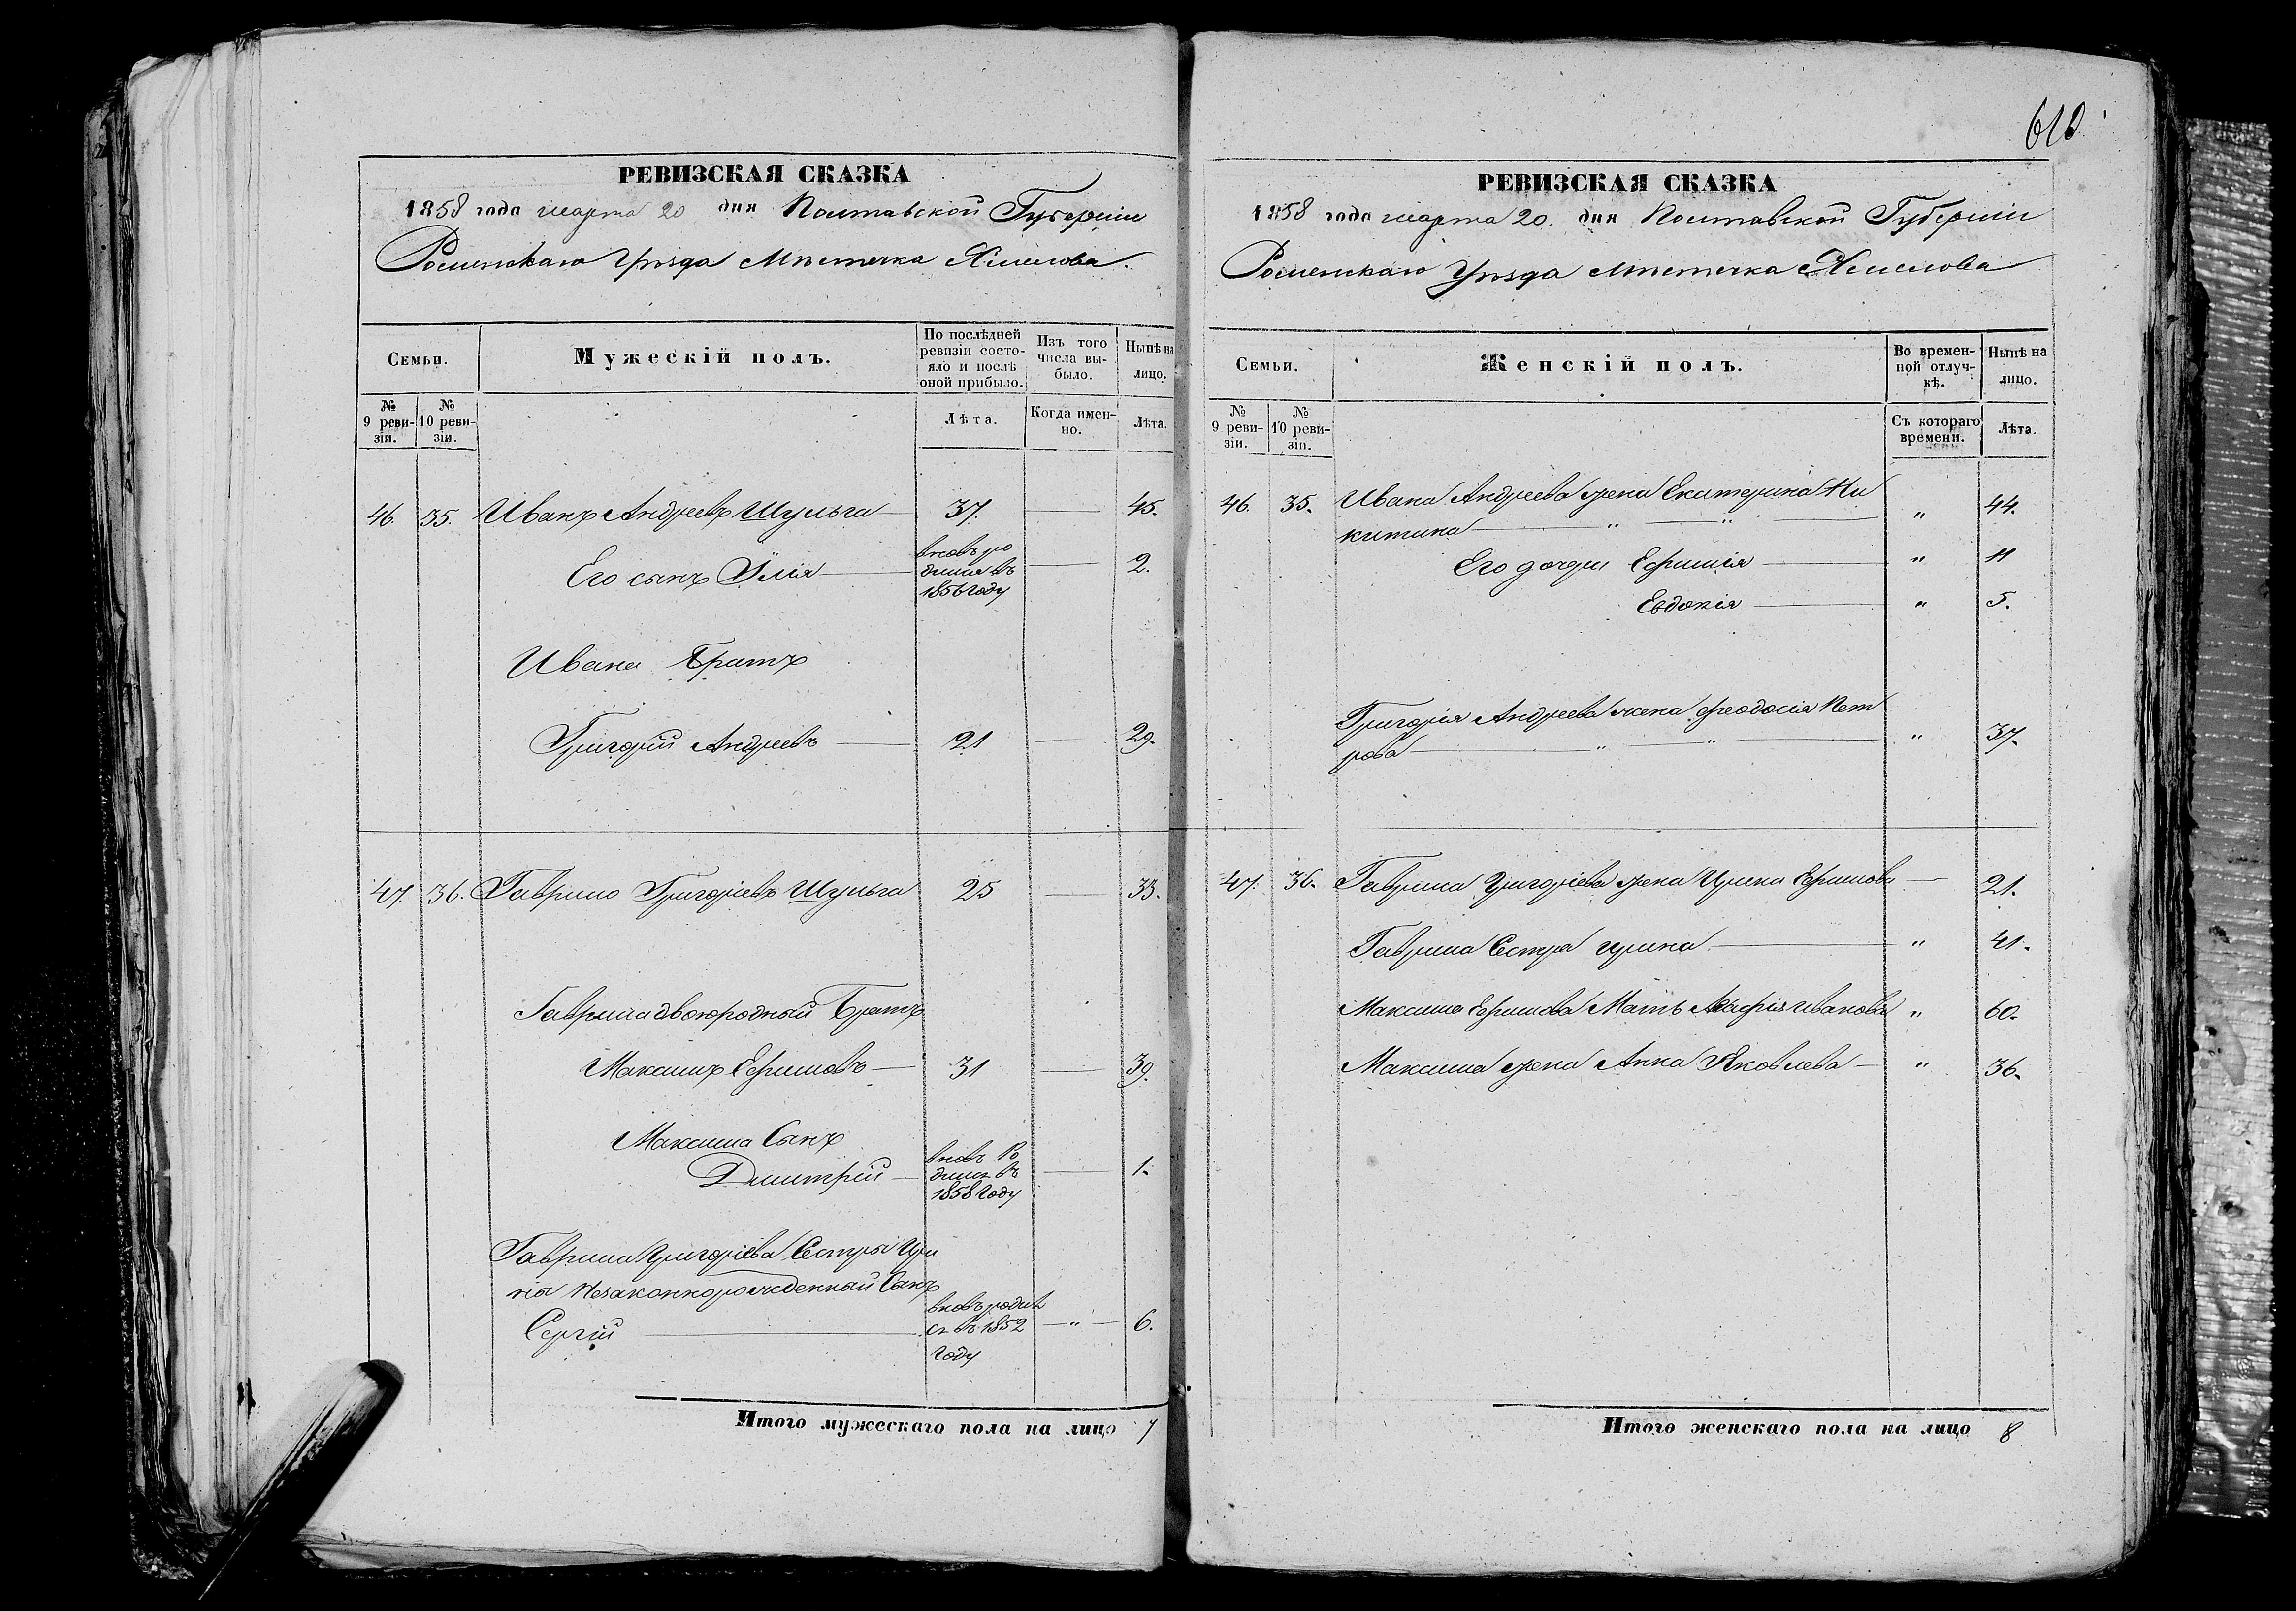 РЕВИЗСКАЯ СКАЗКА
1858 года марта 20 дня Полтавской Губерніи
Роменскаго Уѣзда Мѣстечка Смелова.
Семьи.
Мужескій полъ.
По послѣдней ревизіи состояло и послѣ оной прибыло.
Изъ того числа выбыло.
Нынѣ на лицо.
№ 9 ревизіи.
№ 10 ревизіи.
Лѣта.
Когда именно.
Лѣта.
46. 35. Иванъ Андреевъ Шульга 37. 45.
Его сынъ Илія вновь родился въ 1856 году 2.
Ивана Братъ
Григорій Андреевъ 21 29.
47. 36. Гаврило Григоріевъ Шульга 25 33.
Гаврила двоюродный Братъ
Максимъ Ефимовъ 31 39.
Максима Сынъ
Дмитрій вновь Родился въ 1858 Году 1.
Гаврила Григоріева Сестры Ири
ны Незаконнорожденный Сынъ
Сергій вновь родился въ 1852 Году " 6.
Итого мужескаго пола на лицо 7
610
РЕВИЗСКАЯ СКАЗКА
1858 года марта 20. дня Полтавской Губерніи
Роменскаго Уѣзда Мѣстечка Смелова
Семьи.
Женскій полъ.
Во временной отлучкѣ.
Нынѣ на лицо.
№ 9 ревизіи.
№ 10 ревизіи.
Съ котораго времени.
Лѣта.
46. 35. Ивана Андреева жена Екатерина Ни
китина " " " 44.
Его дочери Ефимія " 11
Евдокія " 5.
Григорія Андреева жена Феодосія Пет
рова " " " 37.
47. 36. Гаврила Григоріева жена Ирина Ефимова 21.
Гаврила Сестра ирина " 41.
Максима Ефимова Мать Агафія иванова " 60.
Максима жена Анна Яковлева " 36.
Итого женскаго пола на лицо 8